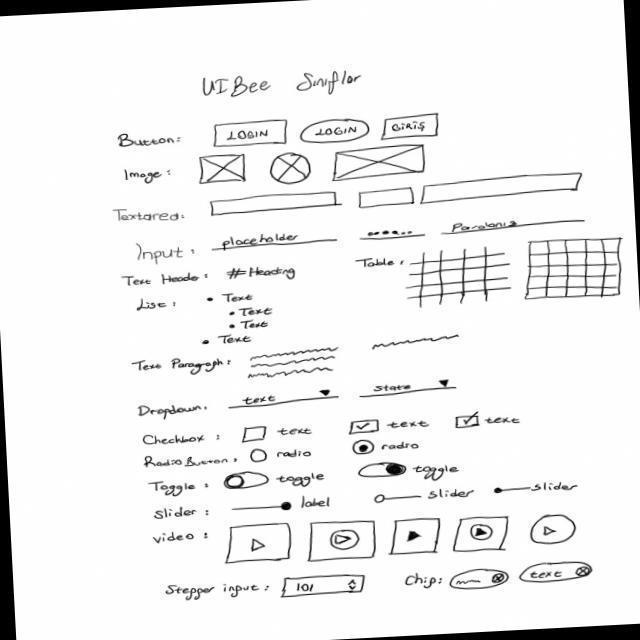 UIBee Sınıflar
Button: LOGIN LOGIN GİRİŞ
Image:
Textarea:
Input: placeholder ...... Parolanız
Text Header: #Heading Table:
List: • Text
• Text
• Text
• Text
Text Paragraph:
Dropdown: text state
Checkbox: text text text
Radio Button: radio radio
Toggle: toggle toggle
Slider: label slider slider
video:
Stepper input: 101 Chip: text